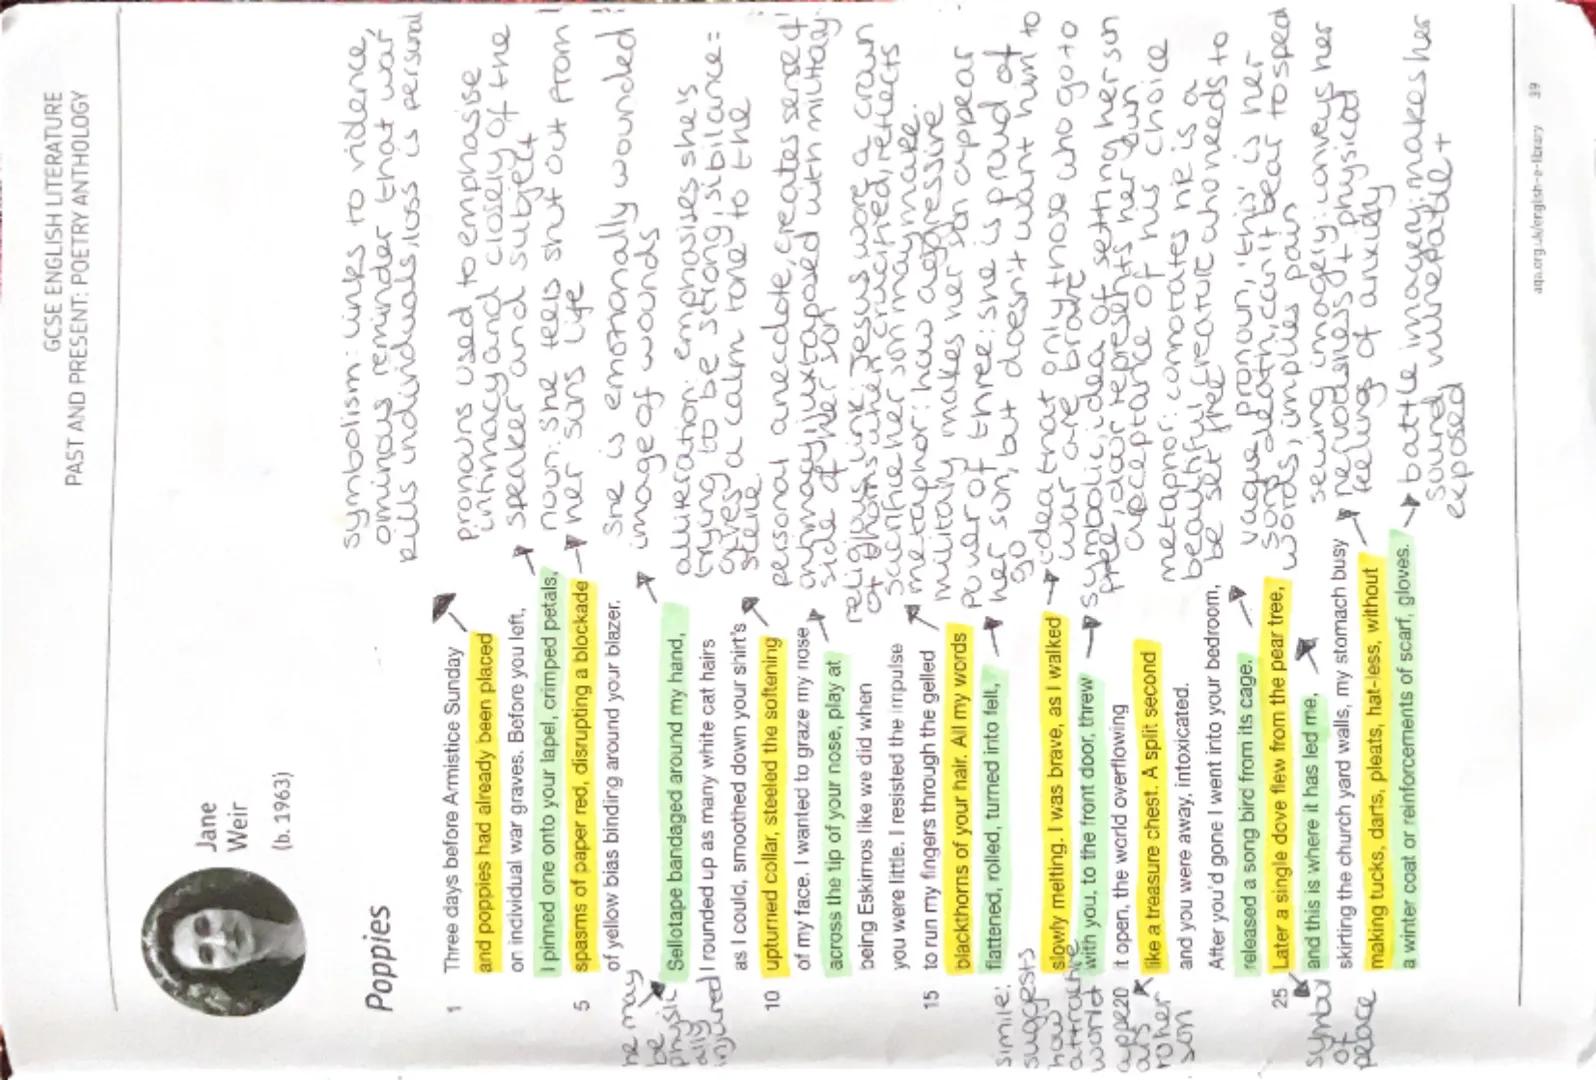 GCSE ENGLISH LITERATURE
PAST AND PRESENT: POETRY ANTHOLOGY
Jane
Weir
(b. 1963)
Poppies
1 Three days before Armistice Sunday
and poppies had already been placed
on individual war graves. Before you left,
I pinned one onto your lapel, crimped petals,
5 spasms of paper red, disrupting a blockade
of yellow bias binding around your blazer.
Sellotape bandaged around my hand,
I rounded up as many white cat hairs
as I could, smoothed down your shirt's
10 upturned collar, steeled the softening
of my face. I wanted to graze my nose
across the tip of your nose, play at
being Eskimos like we did when
you were little. I resisted the impulse
15 to run my fingers through the gelled
blackthorns of your hair. All my words
flattened, rolled, turned into felt,
slowly melting. I was brave, as I walked
with you, to the front door, threw
20 it open, the world overflowing
like a treasure chest. A split second
and you were away, intoxicated.
After you'd gone I went into your bedroom,
released a song bird from its cage.
25 Later a single dove flew from the pear tree,
and this is where it has led me,
skirting the church yard walls, my stomach busy
making tucks, darts, pleats, hat-less, without
a winter coat or reinforcements of scarf, gloves.
symbolism: links to violence,
ominous reminder that war
kills individuals, loss is personal
pronouns used to emphasise
intimacy and closely of the
speaker and subject
noun: she feels shut out from
her suns life
she is emotionally wounded
image of wounds
alliteration: emphasises she's
trying to be strong, sibilance:
gives a calm tone to the
personal anecdote, creates sense of
side of her son
juxtaposed with military
religious link: Jesus wore a crown
of thorns when crucified, reflects
sacrifice her son may make.
metaphor: how aggressive
military makes her son appear
power of three: she is proud of
her son, but doesn't want him to
go
idea that only those who go to
war are brave
symbolic, idea of setting her son
free, door represents her own
acceptance of his choice
metaphor: connotates he is a
beautiful creature who needs to
be set free
vague pronoun, 'this' is her
sons death, can't bear to speak
words, implies pain
sewing imagery: conveys her
nervousness + physical
feelings of anxiety
battle imagery: makes her
sound vulnerable +
exposed
he may
be
physic
ally
injured
simile:
suggests
how
attractive
world
appe
ars
to her
son
symbol
of
peace
aqa.org.uk/english-e-library 39